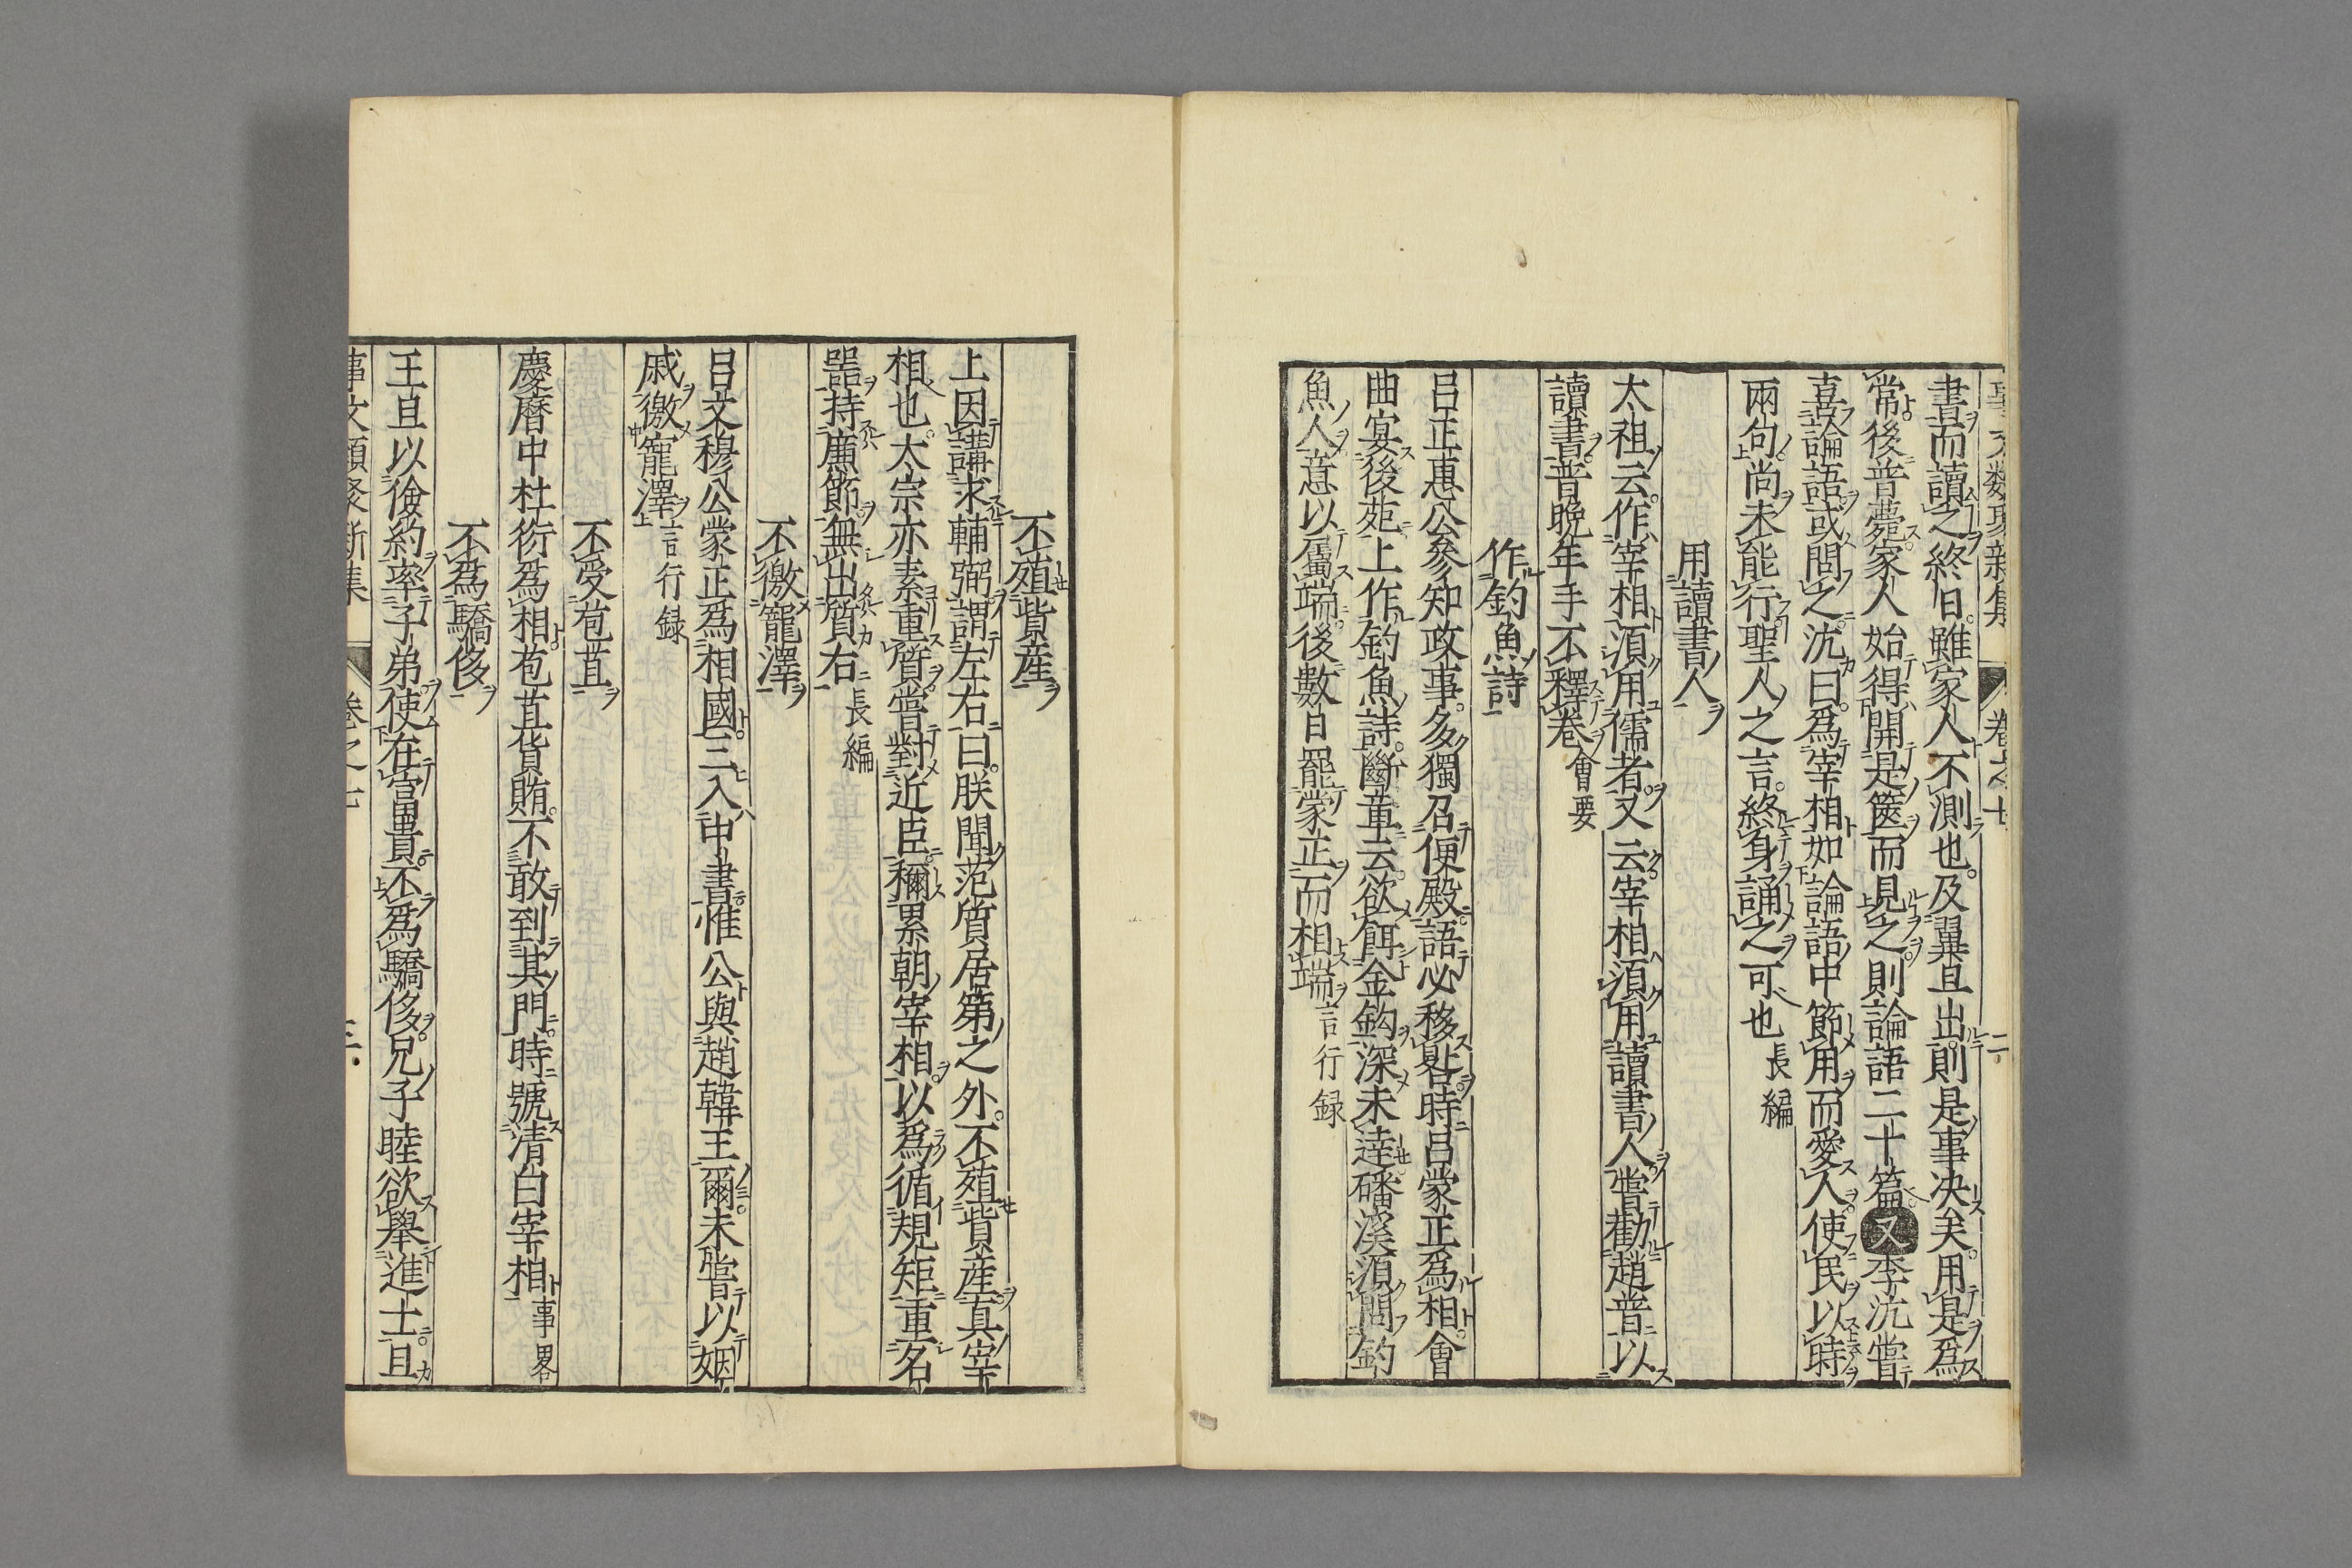 書而讀之終日。雖家人不測也。及翼旦出則是事決矣。用是爲
常後普薨家人始得開是篋而見之則論語二十篇又李沆嘗
喜論語或問之沆曰。爲宰相如論語中節用而愛人使民以時
兩句尚未能行聖人之言。終身誦之可也長編
用讀書人
太祖云。作宰相須用儒者又云宰相須用讀書人嘗勸趙普以
讀書普晩年手不釋卷會要
作釣魚詩
呂正惠公參知政事。多獨召便殿語必移晷時呂蒙正爲相會
曲宴後苑上作釣魚詩。斷章云。欲餌金鈎深未逹磻溪須問釣
魚人意以屬端後數日罷蒙正而相端言行録
不殖貲産
上因講求輔弼謂左右曰。朕聞范質居第之外。不殖貲産真宰
相也。太宗亦素重質嘗對近臣稱累朝宰相以爲循規矩重名
器持廉節無出質右長編
不徼寵澤
呂文穆公蒙正爲相國三入中書惟公與趙韓王爾未嘗以姻
戚徼寵澤言行録
不受苞苴
慶曆中杜衍爲相苞苴貨賄。不敢到其門時號清白宰相事畧
不爲驕侈
王旦以儉約率子弟使在富貴不爲驕侈兄子睦欲舉進士旦
事文類聚新集 卷之七 三